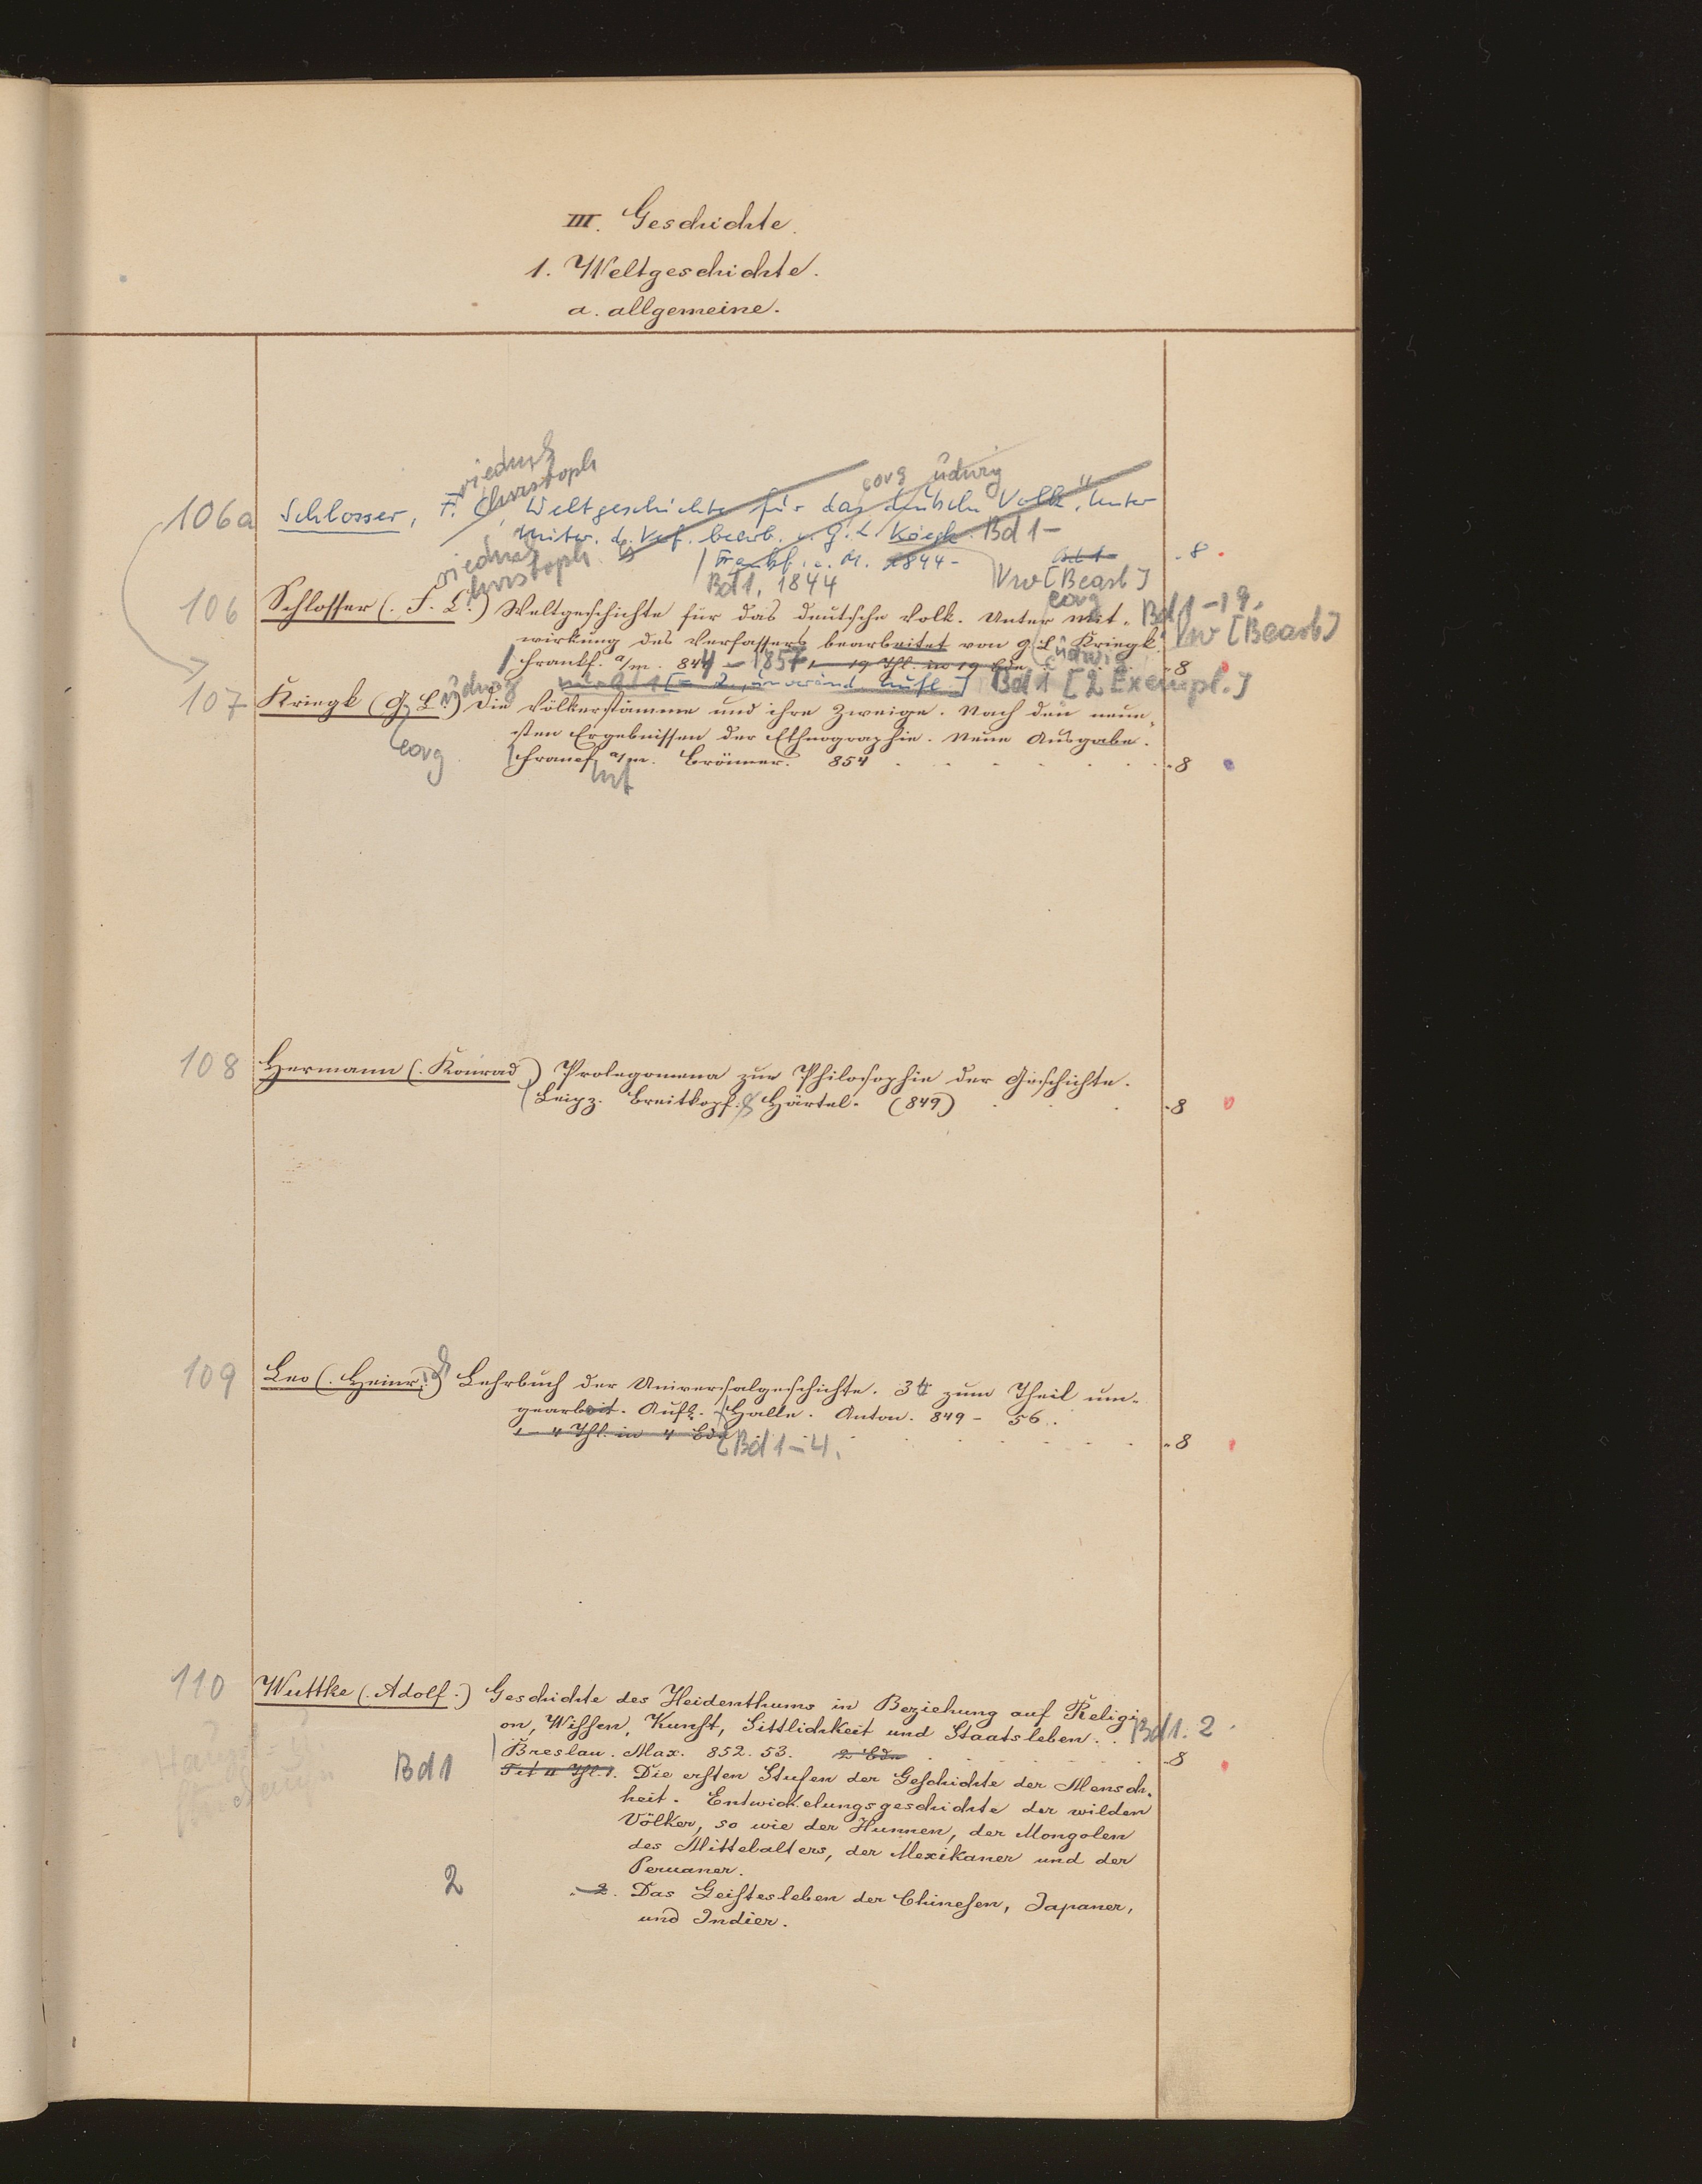 III. Geschichte.
1. Weltgeschichte.
a. allgemeine.
riedrich
Christoph
eorg udwig
106a Schlosser, F. C. Weltgeschichte für das deutsche Volk. Unter
Mitw. d. Verf. bearb. v. G. L. Kriegk. Bd 1-
Frankf. a. M. 1844- 8
riedrich
hristoph
Bd 1, 1844 Vw [Bearb]
eorg
106 Schlosser (. F. C.) Weltgeschichte für das deutsche Volk. Unter Mit- Bd 1-19.
wirkung des Verfassers bearbeitet von G. L. Kriegk. Vw [Bearb]
udwig
Frankf. a/m. 844-1857 1-19 Thl. in 19 Bdn 8
[= 2., unveränd. Aufl.] Bd 1 [2 Exempl.]
udwig
107 Kriegk (G. L.) Die Völkerstämme und ihre Zweige. Nach den neue-
sten Ergebnissen der Ethnographie. Neue Ausgabe.
eorg
Francf. a/m. Brönner. 854 8
108 Hermann (. Konrad) Prolegomena zur Philosophie der Geschichte.
Leipz. Breitkopf & Härtel. (849) 8
109 Leo (. Heinr.) Lehrbuch der Universalgeschichte. 3t zum Theil um-
gearbeit. Aufl. Halle. Anton. 849-56.
1-4 Thl. in 4 Bdn Bd 1-4. 8
110 Wuttke (. Adolf.) Geschichte des Heidenthums in Beziehung auf Religi
on, Wissen, Kunst, Sittlichkeit und Staatsleben. Bd 1. 2
Breslau. Max. 852. 53. 2 Bde 8
Bd 1 Thl. 1. Die ersten Stufen der Geschichte der Mensch-
heit. Entwickelungsgeschichte der wilden
Völker, so wie der Hunnen, der Mongolen
des Mittelalters, der Mexikaner und der
Peruaner.
2 2. Das Geistesleben der Chinesen, Japaner,
und Indier.